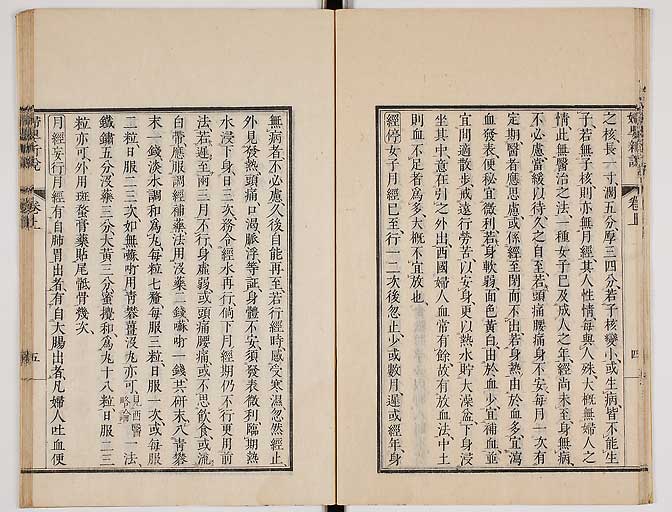 之核長一寸濶五分厚三四分若子核變小或生病皆不能生
子若無子核則亦無月經其人性情每與人殊大概無婦人之
情此無醫治之法一種女子已及成人之年經尚未至身無病
不必慮當緩以待久之自至若頭痛腰痛身不安每月一次有
定期醫者應思慮或係經至閉而不出若身熱由於血多宜瀉
血發表便秘宜微利若身軟弱面色黃白由於血少宜補血並
宜間適散步戒遠行勞苦以安身更以熱水貯大澡盆下身浸
坐其中意在引之外出西國婦人血常有餘故有放血法中土
則血不足者為多大概不宜放也
經停女子月經已至行一二次後忽止少或數月遲或經年身
無病者不必慮久後自能再至若行經時感受寒濕忽然經止
外見發熱頭痛口渴脈浮等証身體不安須發表微利臨期熱
水浸下身日三次務令經水再行倘下月經期仍不行更用前
法若遲至兩三月不行身虛弱或頭痛腰痛或不思飲食或流
白帶應服調經補藥法用沒藥二錢嚹㕷一錢共研末入青礬
末一錢淡水調和為丸每粒七釐每服三粒日服一次或每服
二粒日服二三次如無嚹㕷用青礬薑沒丸亦可見西醫略論一法
鐵鏽五分沒藥三分大黃三分蜜攪和為丸十八粒日服二三
粒亦可外用斑蝥膏藥貼尾骶骨幾次
月經妄行月經有自肺胃出者有自大腸出者凡婦人吐血便
婦嬰新說
卷上
四
卷上
五